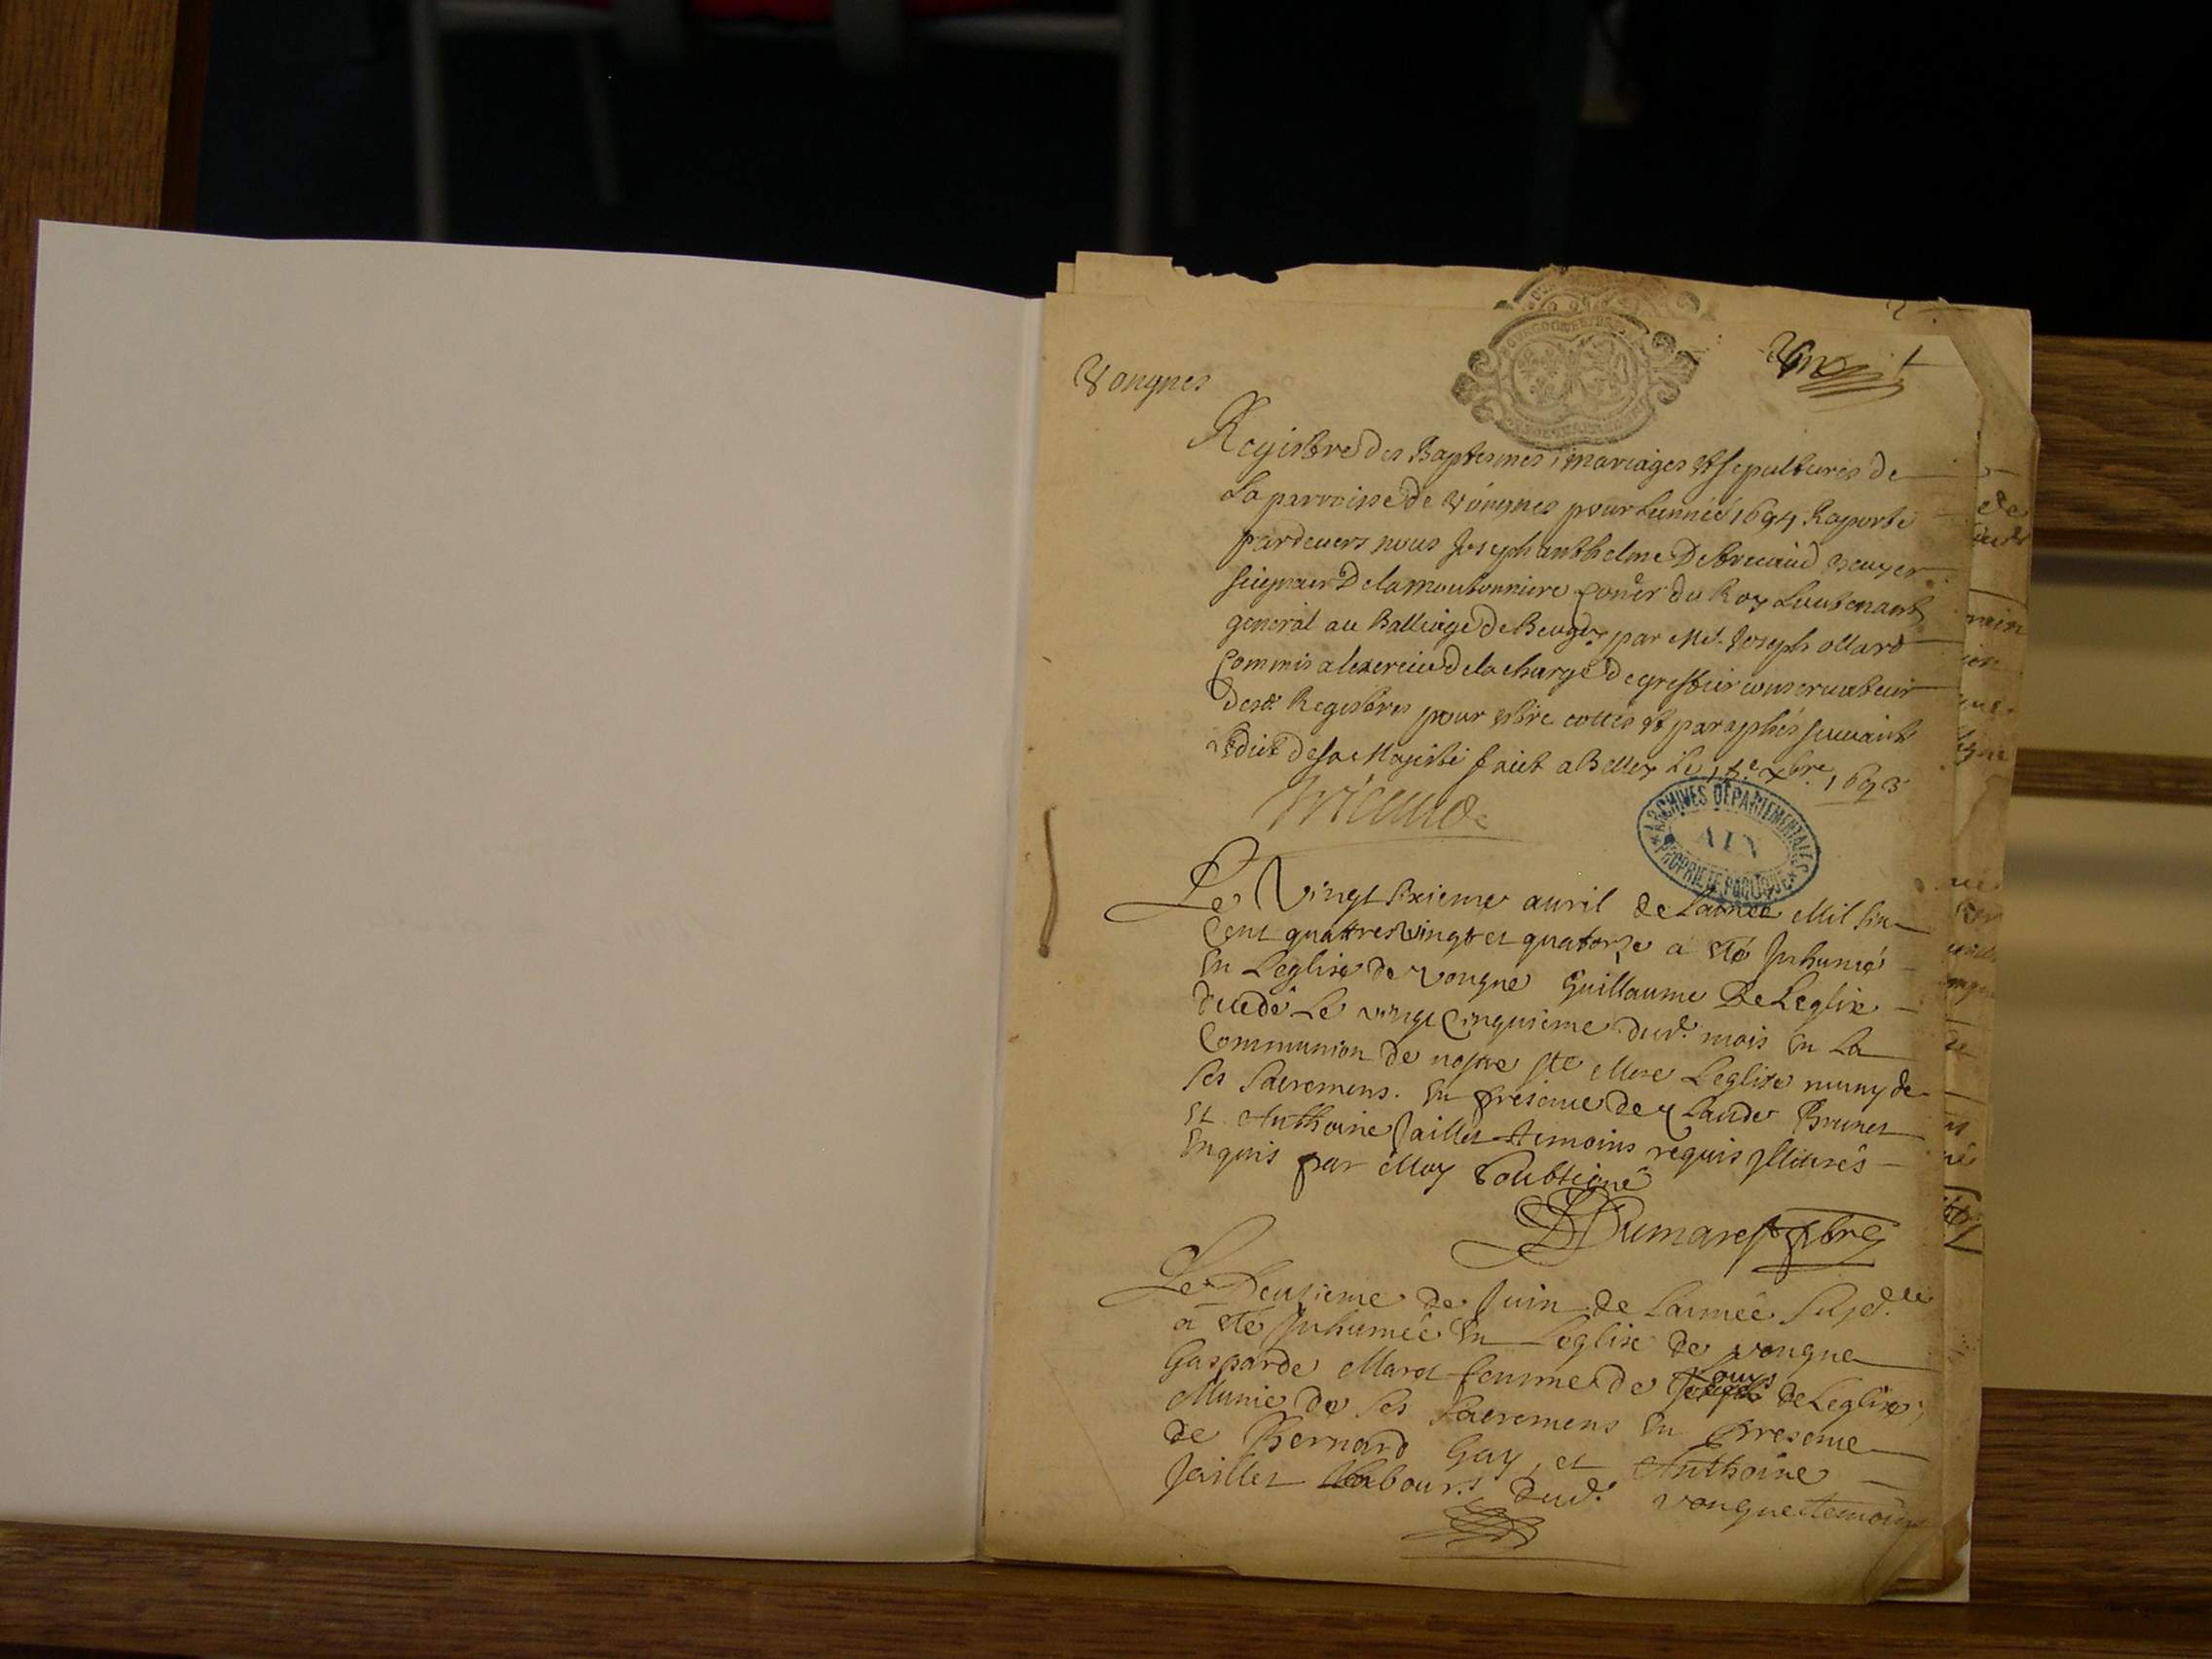 Vongnes
Registre des Baptesmes, mariages et sepultures de
La parroisse de Vongnes pour Lannéé 1694 Raporté
pardeuers nous Joseph anthelme De
seigneur Delamoutonniere Coner du Roy Lieutenant
general au Balliage de Beugey par Me. Joseph ollard
Commis a lexercice de la charge de greffier conseruateur
desd Registres pour estre cottés et paraphés suiuant
Ledict de sa Majesté faict a Belley le 15e xbre 1693
ARCHIVES DÉPARTEMENTALES
AIN
PROPRIÉTÉ PUBLIQUE
Le Vingt sixieme auril de Lannéé Mil six
Cent quattres vingt et quatorze a eté Inhumé
En Leglise de Vongne Guillaume De Leglise
decedé Le vingt Cinquieme dud. mois En La
Communion de nostre ste Mere Leglise muny de
ses sacremens. En presence de Claude Brunet
Et Anthoine Jaillet temoins requis
Enquis par Moy soubsigné
Dumarest pbre
Le Deuxieme de Juin de Lannéé susd.
a eté Inhuméé En Leglise de vongne
Gasparde Maret femme de Louys de Leglise,
Munie de ses sacremens En presence
de Bernard Gay, et Anthoine
Jaillet Labours. dud. vongne temoins